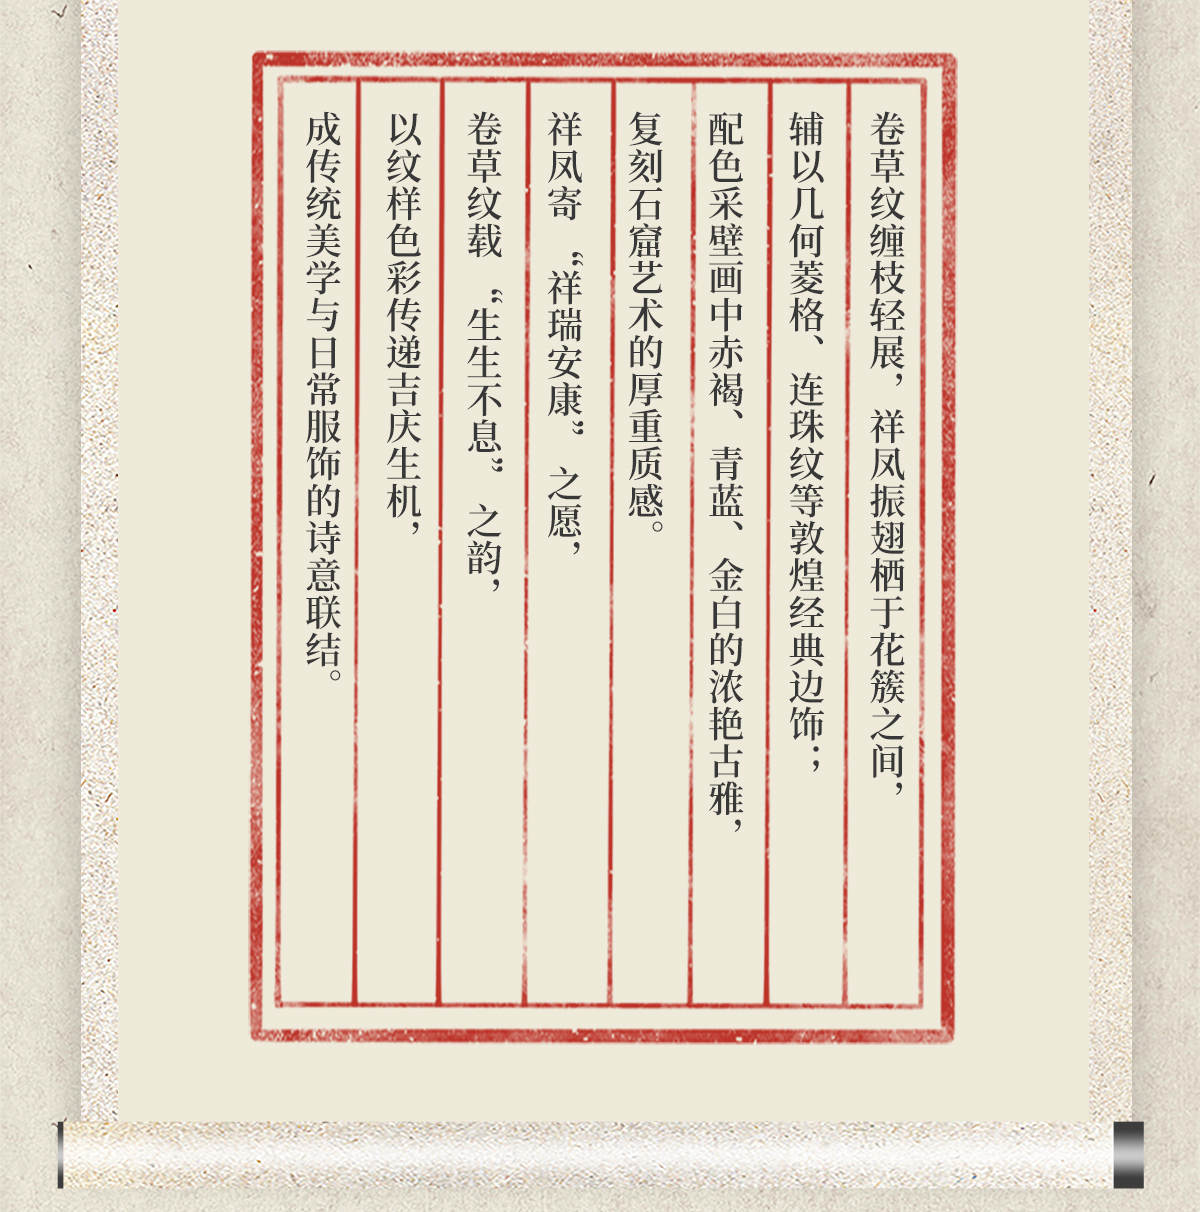 卷草纹缠枝轻展，祥凤振翅栖于花簇之间，
辅以几何菱格、连珠纹等敦煌经典边饰；
配色采壁画中赤褐、青蓝、金白的浓艳古雅，
复刻石窟艺术的厚重质感。
祥凤寄“祥瑞安康”之愿，
卷草纹载“生生不息”之韵，
以纹样色彩传递吉庆生机，
成传统美学与日常服饰的诗意联结。